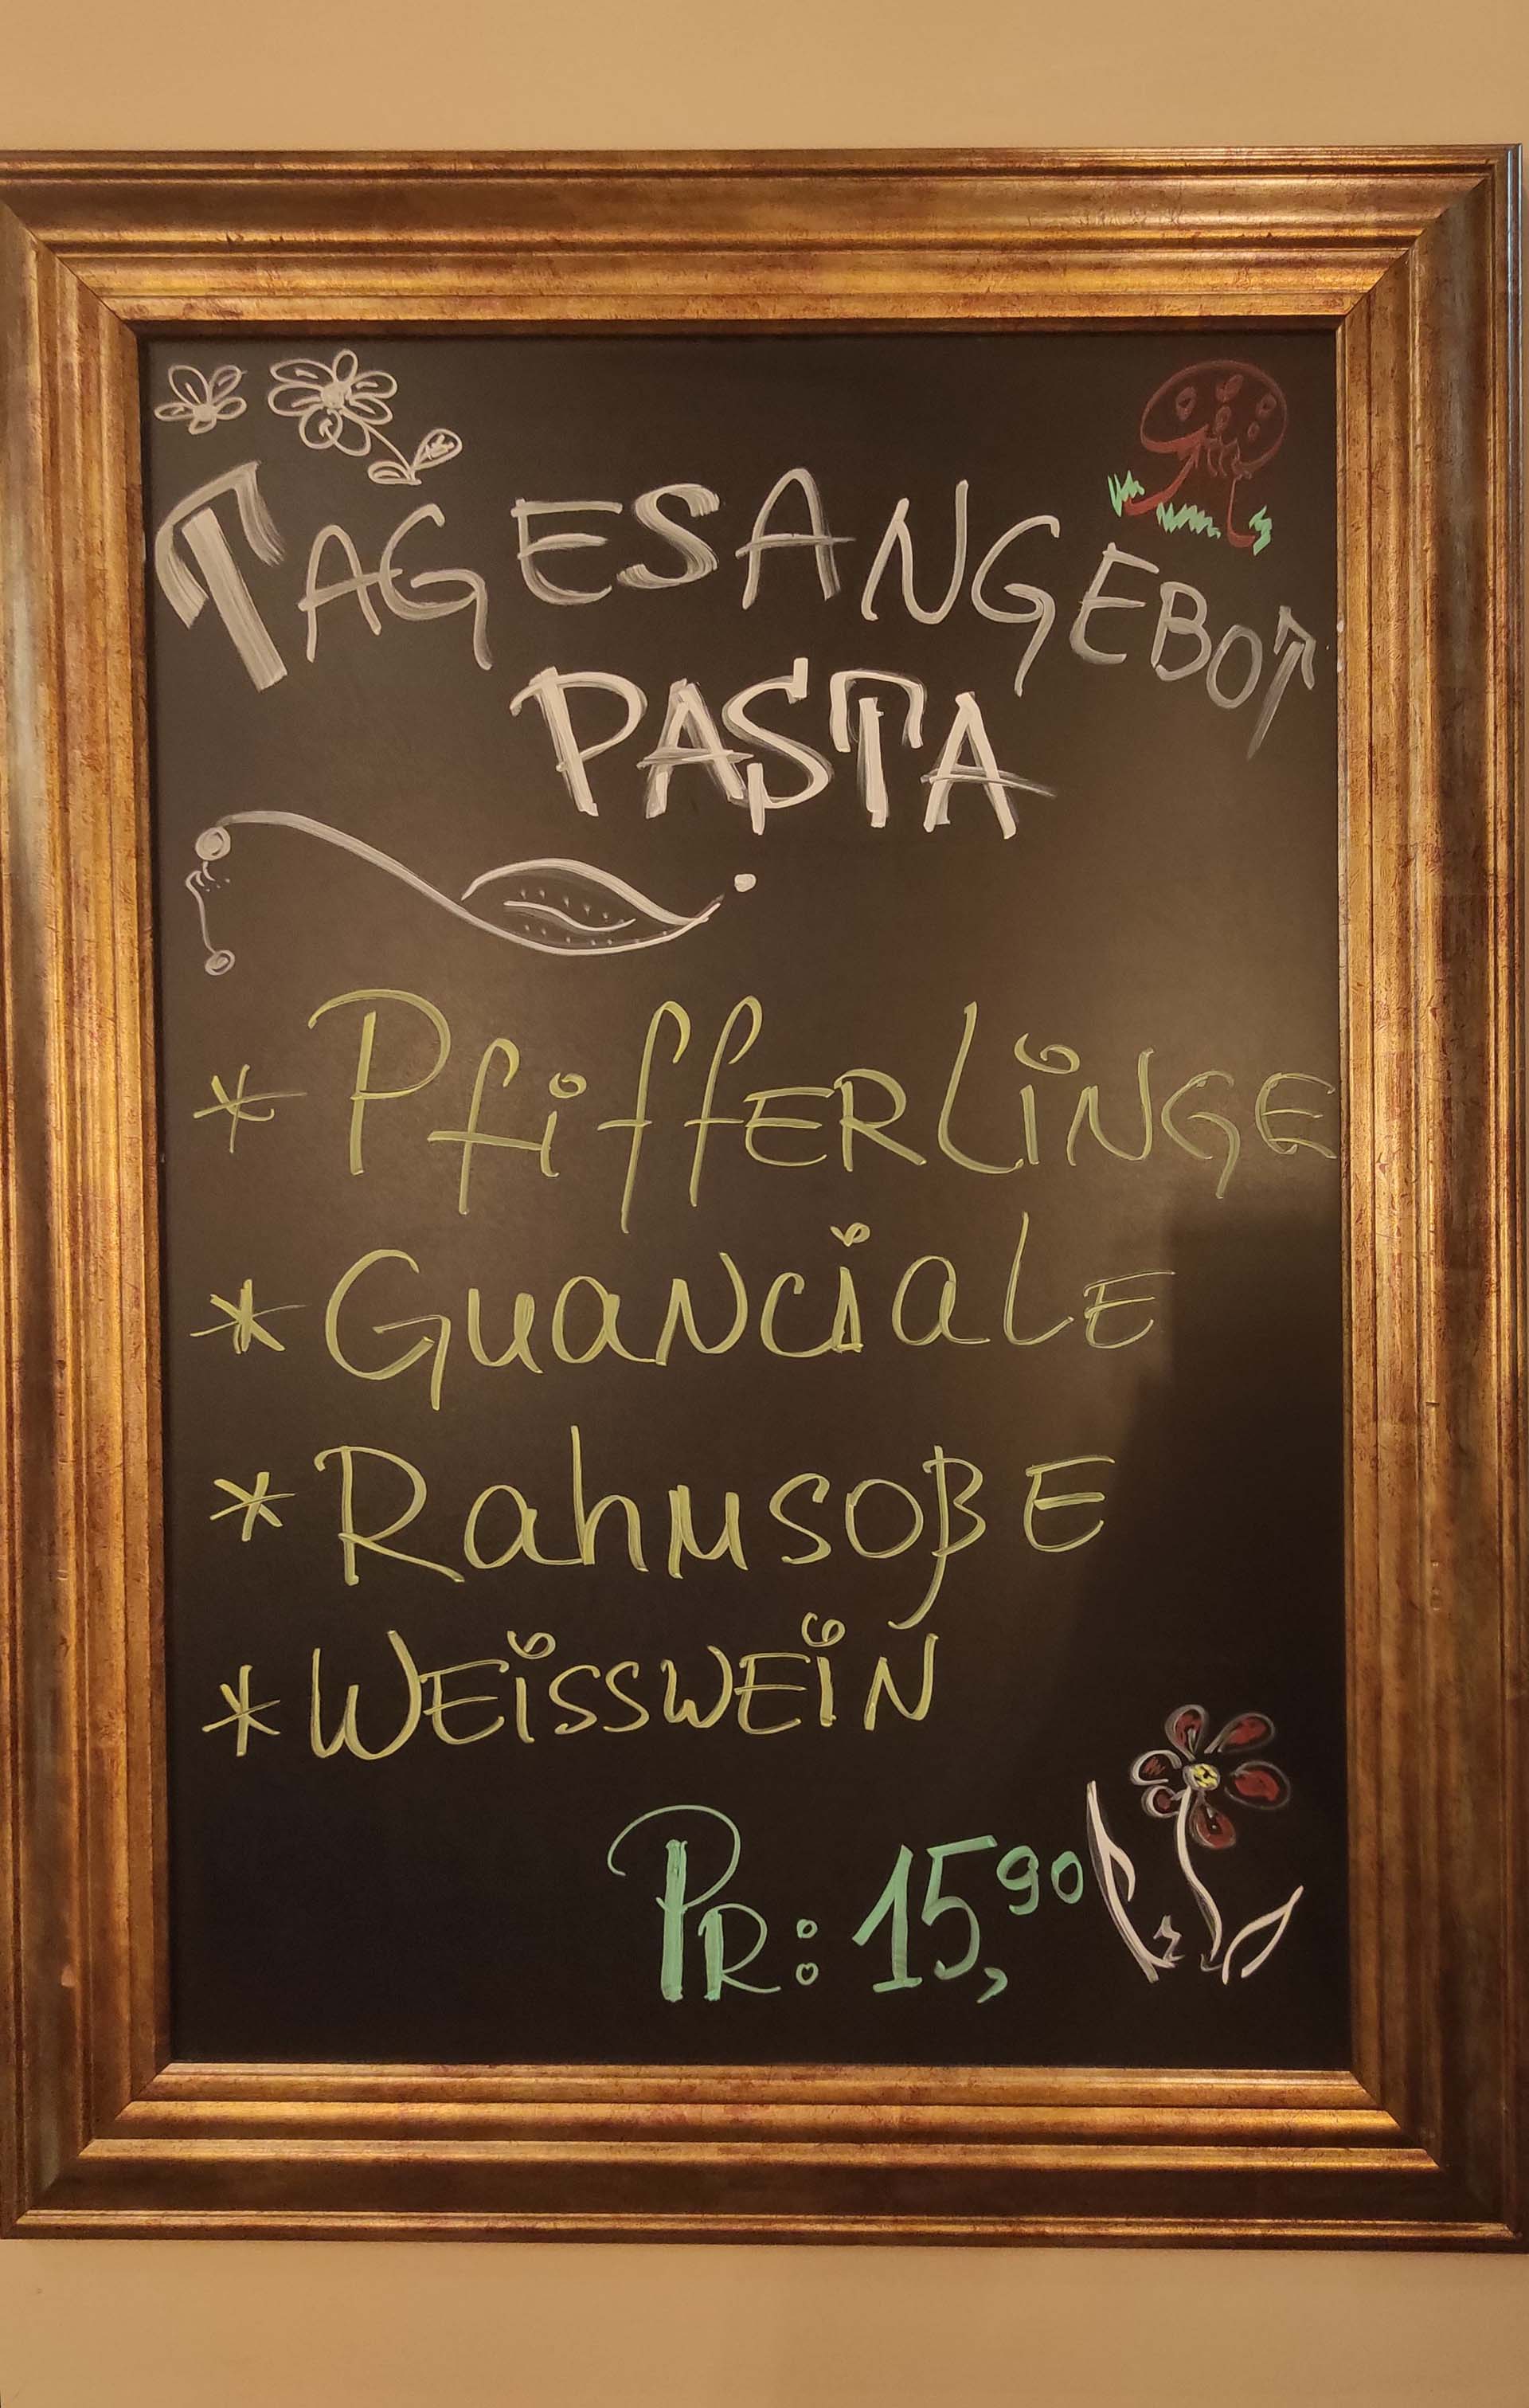 TAGESANGEBOT
PASTA
* PfiffERLiNGE
* GuANCiALE
* RahmsoßE
* WEiSSWEiN
PR: 15,90